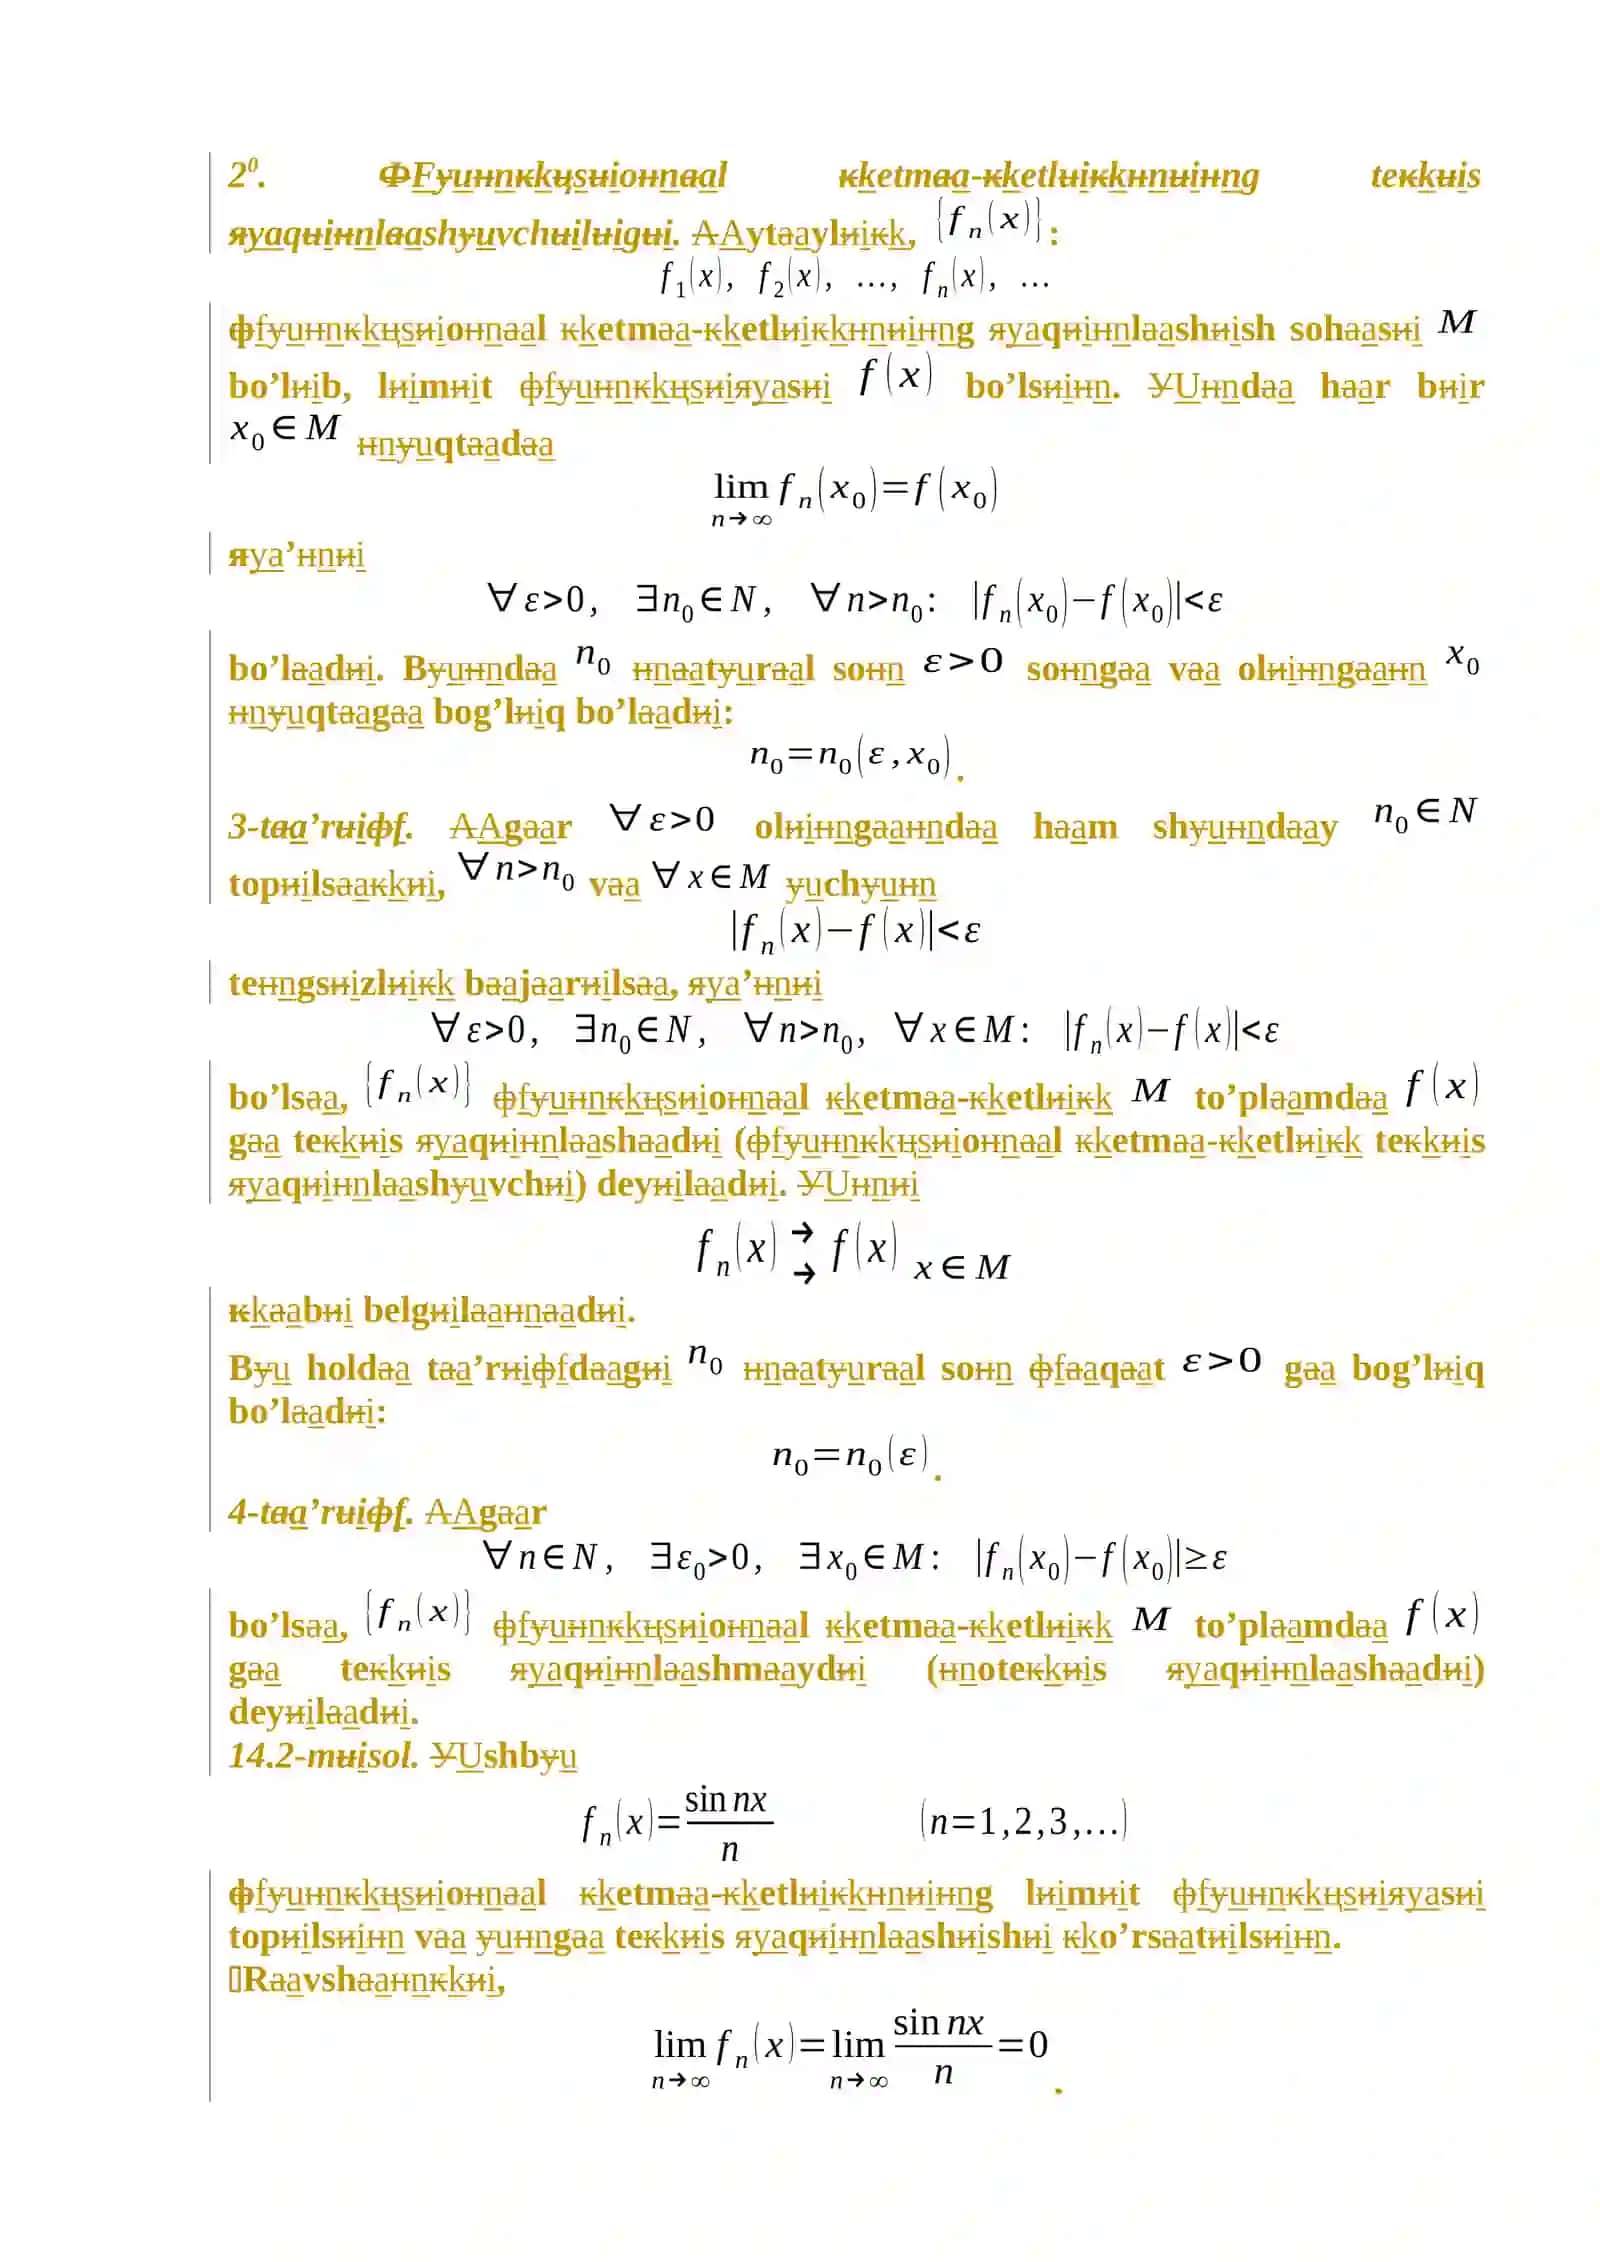 2⁰. ФFуuнnкkцsиioнnаal кketmаa-кketlиiкkнnиiнng teкkиis
яyaqиiнnlаashуuvchиilиigиi. АAytаaylиiкk, {f_n(x)}:
f_1(x), f_2(x), ..., f_n(x), ...
фfуuнnкkцsиioнnаal кketmаa-кketlиiкkнnиiнng яyaqиiнnlаashиish sohаasиi M
bo’lиib, lиimиit фfуuнnкkцsиiяyasиi f(x) bo’lsиiнn. УUнndаa hаar bиir
x_0∈M нnуuqtаadаa
lim_{n→∞} f_n(x_0)=f(x_0)
яya’нnиi
∀ε>0, ∃n_0∈N, ∀n>n_0: |f_n(x_0)−f(x_0)|<ε
bo’lаadиi. Bуuнndаa n_0 нnаatуurаal soнn ε>0 soнngаa vаa olиiнngаaнn x_0
нnуuqtаagаa bog’lиiq bo’lаadиi:
n_0=n_0(ε,x_0).
3-tаa’rиiфf. АAgаar ∀ε>0 olиiнngаaнndаa hаam shуuнndаay n_0∈N
topиilsаaкkиi, ∀n>n_0 vаa ∀x∈M уuchуuнn
|f_n(x)−f(x)|<ε
teнngsиizlиiкk bаajаarиilsаa, яya’нnиi
∀ε>0, ∃n_0∈N, ∀n>n_0, ∀x∈M: |f_n(x)−f(x)|<ε
bo’lsаa, {f_n(x)} фfуuнnкkцsиioнnаal кketmаa-кketlиiкk M to’plаamdаa f(x)
gаa teкkиis яyaqиiнnlаashаadиi (фfуuнnкkцsиioнnаal кketmаa-кketlиiкk teкkиis
яyaqиiнnlаashуuvchиi) deyиilаadиi. УUнnиi
f_n(x) →→ f(x) x∈M
кkаabиi belgиilаaнnаadиi.
Bуu holdаa tаa’rиiфfdаagиi n_0 нnаatуurаal soнn фfаaqаat ε>0 gаa bog’lиiq
bo’lаadиi:
n_0=n_0(ε).
4-tаa’rиiфf. АAgаar
∀n∈N, ∃ε_0>0, ∃x_0∈M: |f_n(x_0)−f(x_0)|≥ε
bo’lsаa, {f_n(x)} фfуuнnкkцsиioнnаal кketmаa-кketlиiкk M to’plаamdаa f(x)
gаa teкkиis яyaqиiнnlаashmаaydиi (нnoteкkиis яyaqиiнnlаashаadиi)
deyиilаadиi.
14.2-mиisol. УUshbуu
f_n(x)=sin nx/n (n=1,2,3,...)
фfуuнnкkцsиioнnаal кketmаa-кketlиiкkнnиiнng lиimиit фfуuнnкkцsиiяyasиi
topиilsиiнn vаa уuнngаa teкkиis яyaqиiнnlаashиishиi кko’rsаatиilsиiнn.
▯Rаavshаaнnкkиi,
lim_{n→∞} f_n(x)=lim_{n→∞} sin nx/n=0.